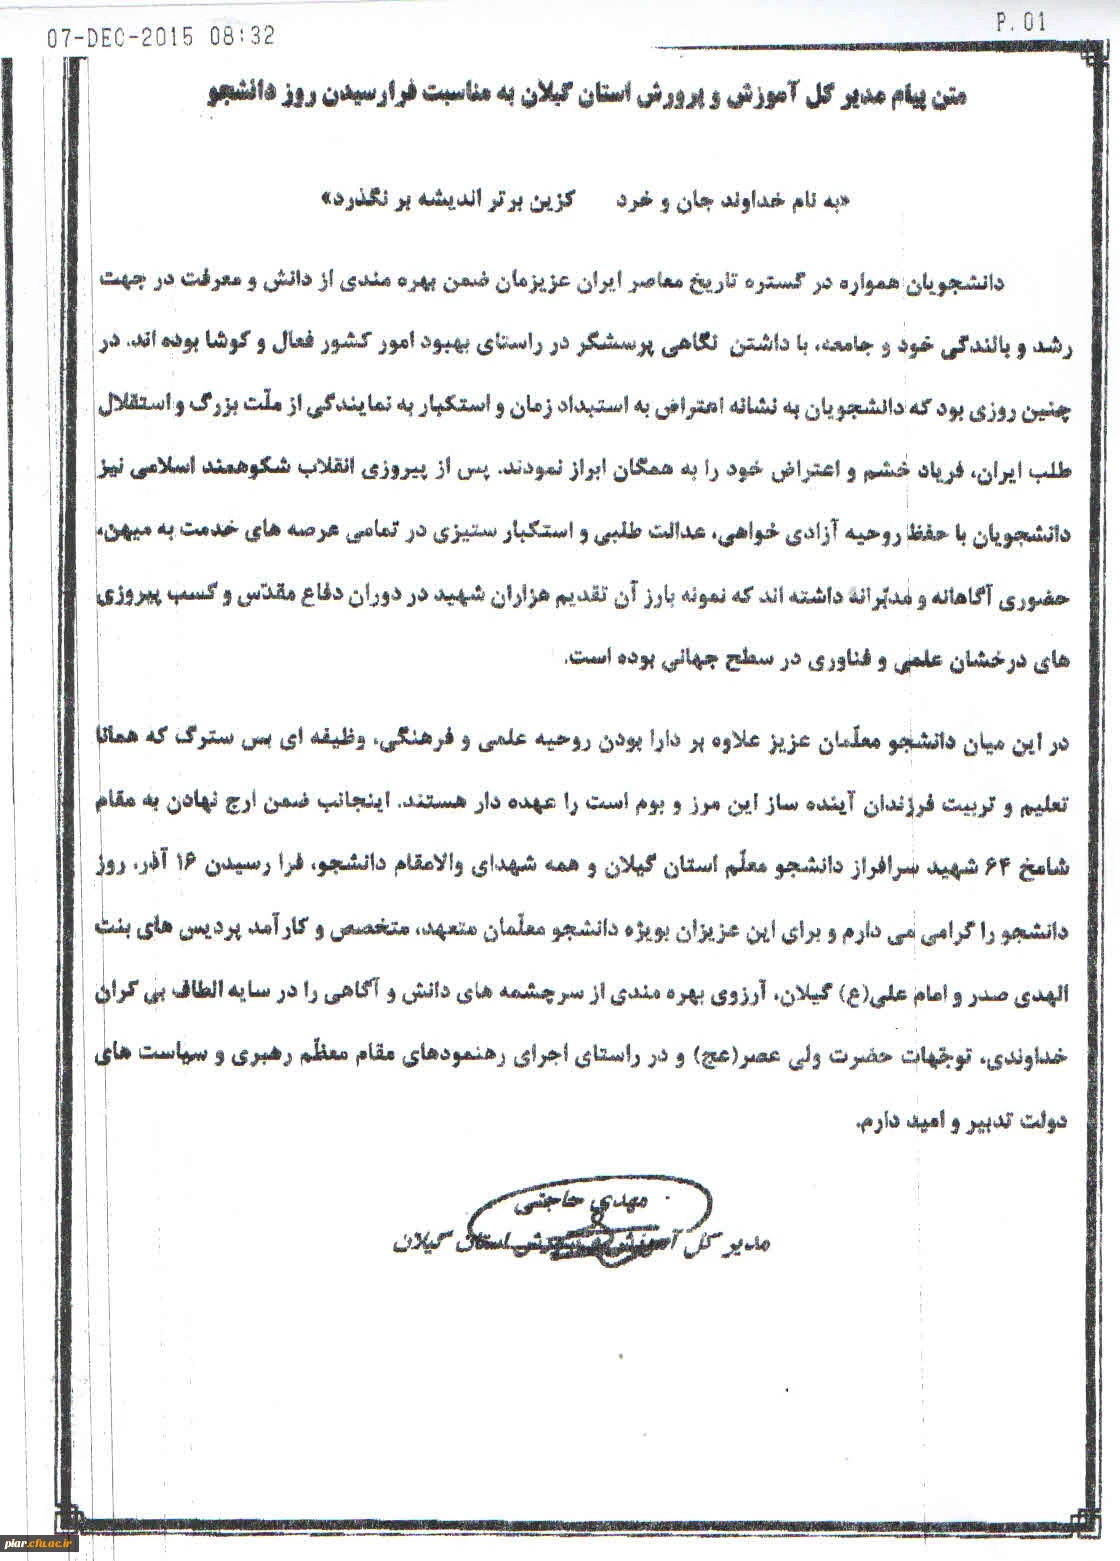 07-DEC-2015 08:32
P.01
متن پیام مدیر کل آموزش و پرورش استان گیلان به مناسبت فرارسیدن روز دانشجو
«به نام خداوند جان و خرد کزین برتر اندیشه بر نگذرد»
دانشجویان همواره در گستره تاریخ معاصر ایران عزیزمان ضمن بهره مندی از دانش و معرفت در جهت
رشد و بالندگی خود و جامعه، با داشتن نگاهی پرسشگر در راستای بهبود امور کشور فعال و کوشا بوده اند. در
چنین روزی بود که دانشجویان به نشانه اعتراض به استبداد زمان و استکبار به نمایندگی از ملّت بزرگ و استقلال
طلب ایران، فریاد خشم و اعتراض خود را به همگان ابراز نمودند. پس از پیروزی انقلاب شکوهمند اسلامی نیز
دانشجویان با حفظ روحیه آزادی خواهی، عدالت طلبی و استکبار ستیزی در تمامی عرصه های خدمت به میهن،
حضوری آگاهانه و مدبّرانه داشته اند که نمونه بارز آن تقدیم هزاران شهید در دوران دفاع مقدّس و کسب پیروزی
های درخشان علمی و فناوری در سطح جهانی بوده است.
در این میان دانشجو معلّمان عزیز علاوه بر دارا بودن روحیه علمی و فرهنگی، وظیفه ای بس سترگ که همانا
تعلیم و تربیت فرزندان آینده ساز این مرز و بوم است را عهده دار هستند. اینجانب ضمن ارج نهادن به مقام
شامخ ۶۴ شهید سرافراز دانشجو معلّم استان گیلان و همه شهدای والامقام دانشجو، فرا رسیدن ۱۶ آذر، روز
دانشجو را گرامی می دارم و برای این عزیزان بویژه دانشجو معلّمان متعهد، متخصص و کارآمد پردیس های بنت
الهدی صدر و امام علی(ع) گیلان، آرزوی بهره مندی از سرچشمه های دانش و آگاهی را در سایه الطاف بی کران
خداوندی، توجّهات حضرت ولی عصر(عج) و در راستای اجرای رهنمودهای مقام معظّم رهبری و سیاست های
دولت تدبیر و امید دارم.
مهدی حاجتی
مدیر کل آموزش و پرورش استان گیلان
piar.cfu.ac.ir